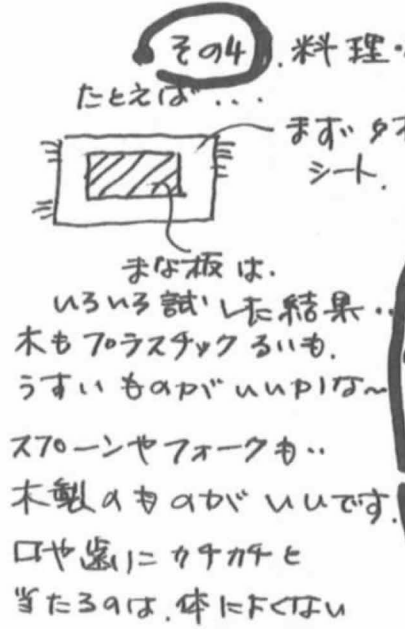 その4.料理・
たとえば...
まず、タオ
シート.
まな板は.
いろいろ試した結果..
木もプラスチックるいも.
うすいものがいいかな〜
スプーンやフォークも..
木製のものがいいです.
口や歯にカチカチと
当たるのは.体によくない